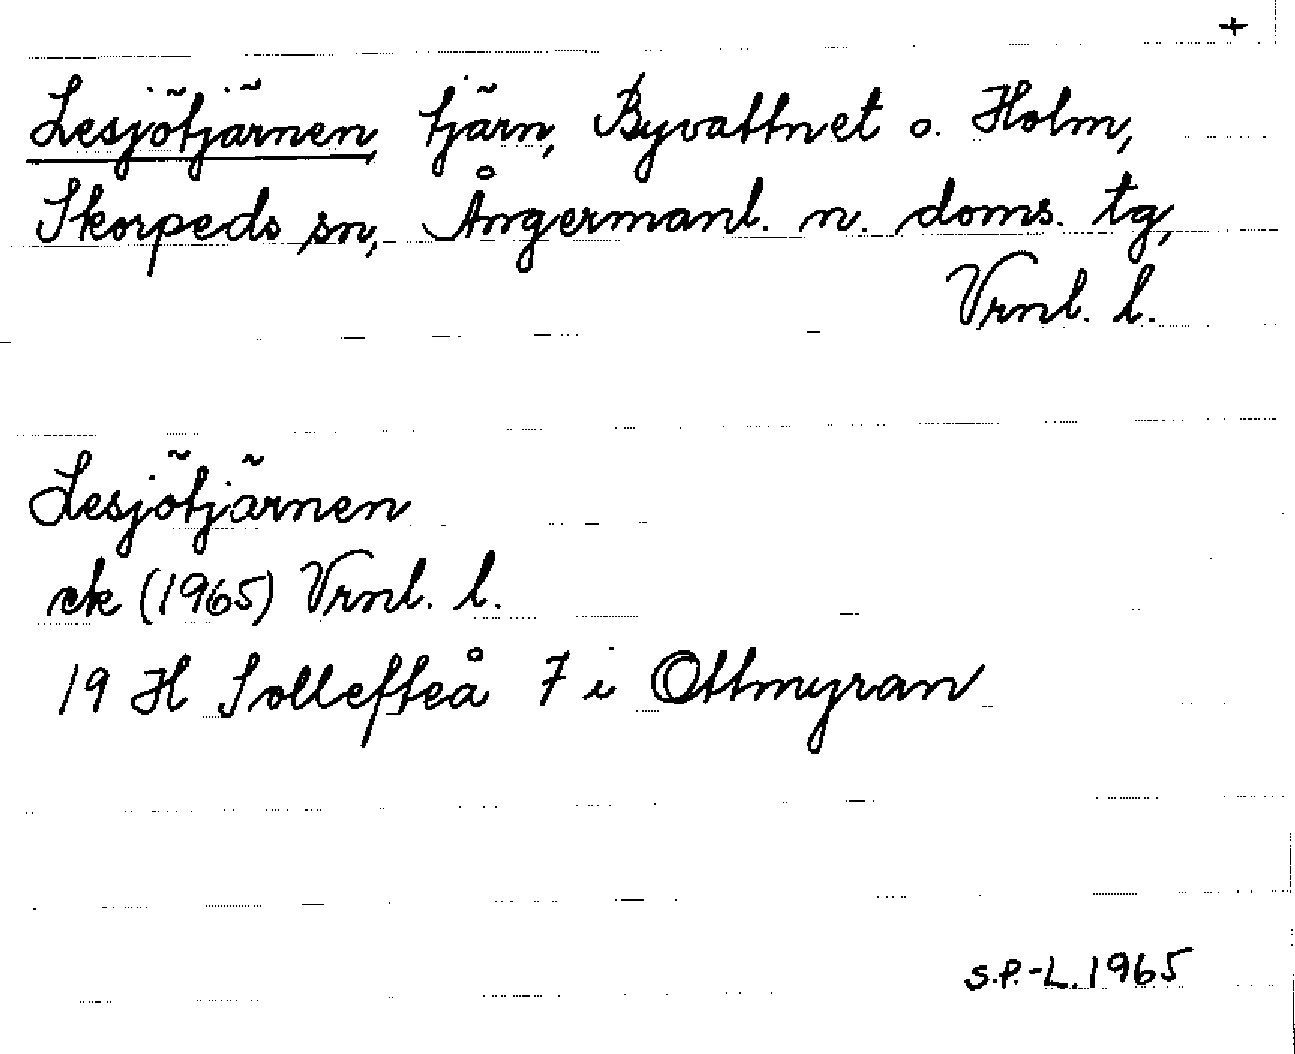 +
Lesjötjärnen, tjärn, Byvattnet o. Holm,
Skorpeds sn, Ångermanl. n. doms. tg,
Vrnl. l.
Lesjötjärnen
ek (1965) Vrnl. l.
19 H Sollefteå 7 i Ottmyran
S.P.-L. 1965